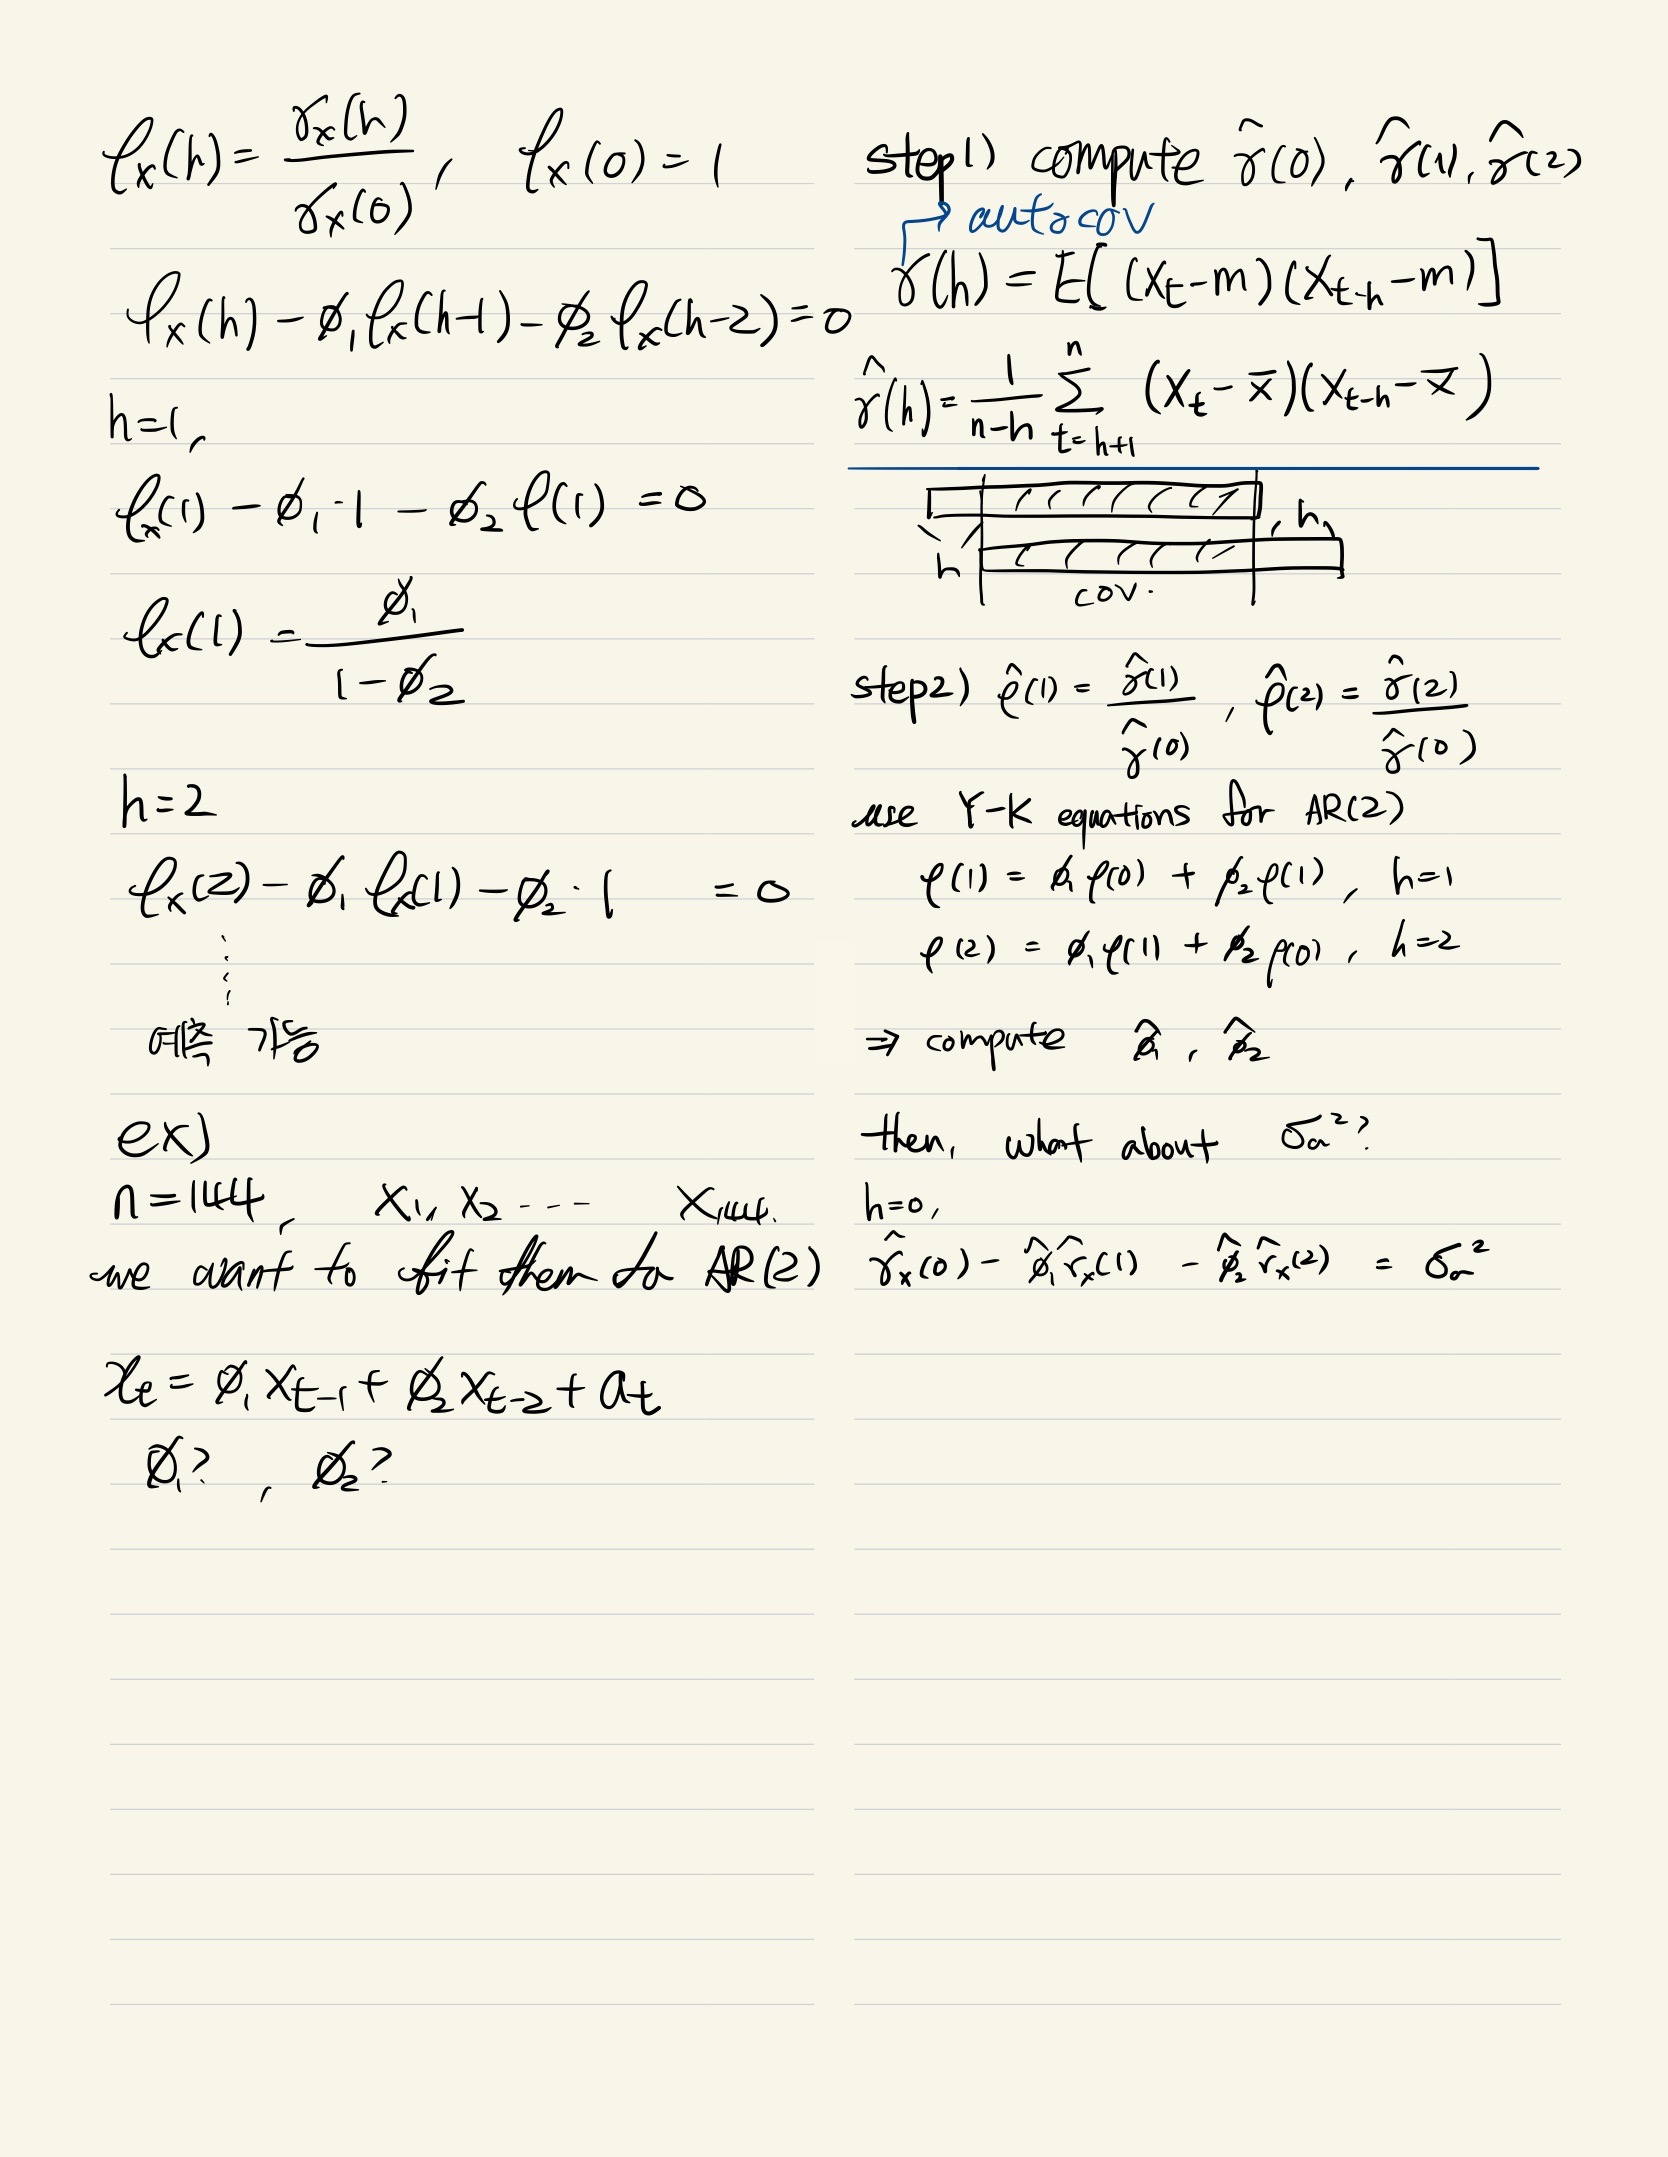 ρx(h) = γx(h) / γx(0) , ρx(0) = 1
ρx(h) - ϕ1 ρx(h-1) - ϕ2 ρx(h-2) = 0
h=1,
ρx(1) - ϕ1 · 1 - ϕ2 ρ(1) = 0
ρx(1) = ϕ1 / (1-ϕ2)
h=2
ρx(2) - ϕ1 ρx(1) - ϕ2 · 1 = 0
⋮
예측 가능
ex)
n=144, X1, X2 ---- X144.
we want to fit them to AR(2)
xt = ϕ1 Xt-1 + ϕ2 Xt-2 + at
ϕ1? , ϕ2?
step1) compute γ̂(0), γ̂(1), γ̂(2)
autocov
γ(h) = E[(Xt-m)(Xt-h-m)]
γ̂(h) = 1/(n-h) Σ_{t=h+1}^{n} (Xt - x̄)(Xt-h - x̄)
h
h
cov.
step2) ρ̂(1) = γ̂(1) / γ̂(0) , ρ̂(2) = γ̂(2) / γ̂(0)
use Y-K equations for AR(2)
ρ(1) = ϕ1 ρ(0) + ϕ2 ρ(1) , h=1
ρ(2) = ϕ1 ρ(1) + ϕ2 ρ(0) , h=2
⇒ compute ϕ̂1 , ϕ̂2
then, what about σa²?
h=0,
γ̂x(0) - ϕ̂1 γ̂x(1) - ϕ̂2 γ̂x(2) = σa²